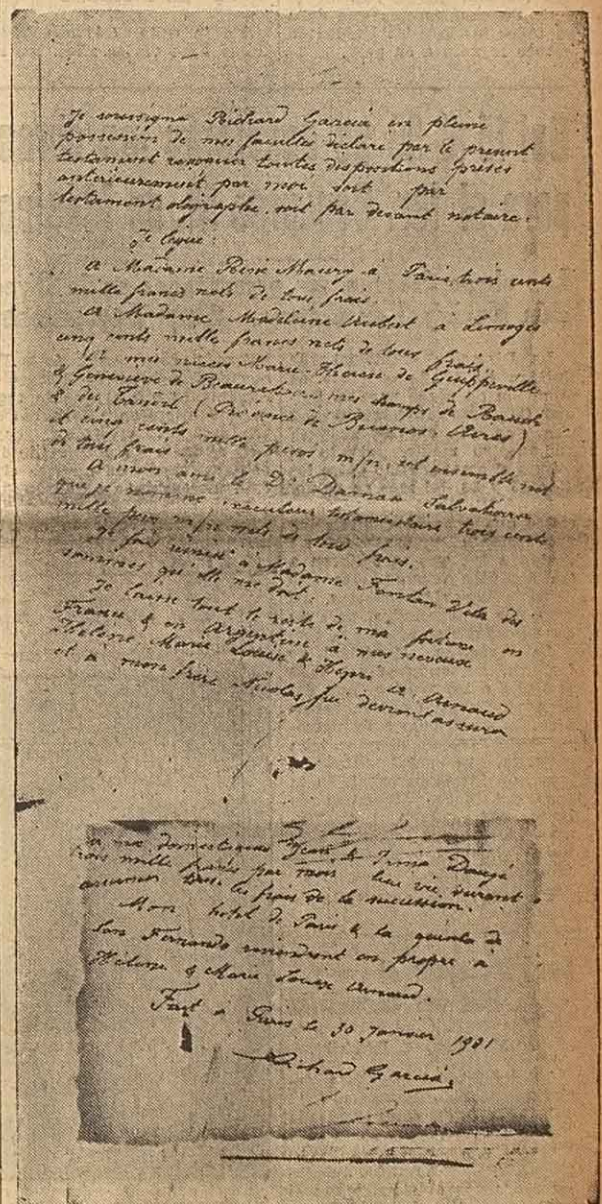 Je soussigné Richard Garcia en pleine
possession de mes facultés déclare par le présent
testament révoquer toutes dispositions prises
antérieurement par moi soit par
testament olographe, soit par devant notaire.
Je lègue:
A Madame René Maury à Paris, trois cents
mille francs nets de tous frais.
A Madame Madeleine Aubert à Limoges
cinq cents mille francs nets de tous frais.
A mes nièces Marie-Thérèse de
& Geneviève de mes champs de
& du Tandil (Province de Buenos-Aires)
et cinq cents mille pesos m/n, cet ensemble net
de tous frais.
A mon ami le Dr Damas Salvatierra
que je nomme exécuteur testamentaire trois cents
mille pesos m/n nets de tous frais.
Je fais remise à Madame Vela des
sommes qu'elle me doit.
Je laisse tout le reste de ma fortune en
France & en Argentine à mes neveux
Hélène, Marie Louise & Henri Arnaud
et à mon frère Nicolas, qui devront assurer
à mes domestiques Jean & Irma
trois mille francs par mois leur vie durant &
assumer tous les frais de la succession.
Mon hôtel de Paris & la quinta de
San Fernando reviendront en propre à
Hélène & Marie Louise Arnaud.
Fait à Paris le 30 Janvier 1931
Richard Garcia